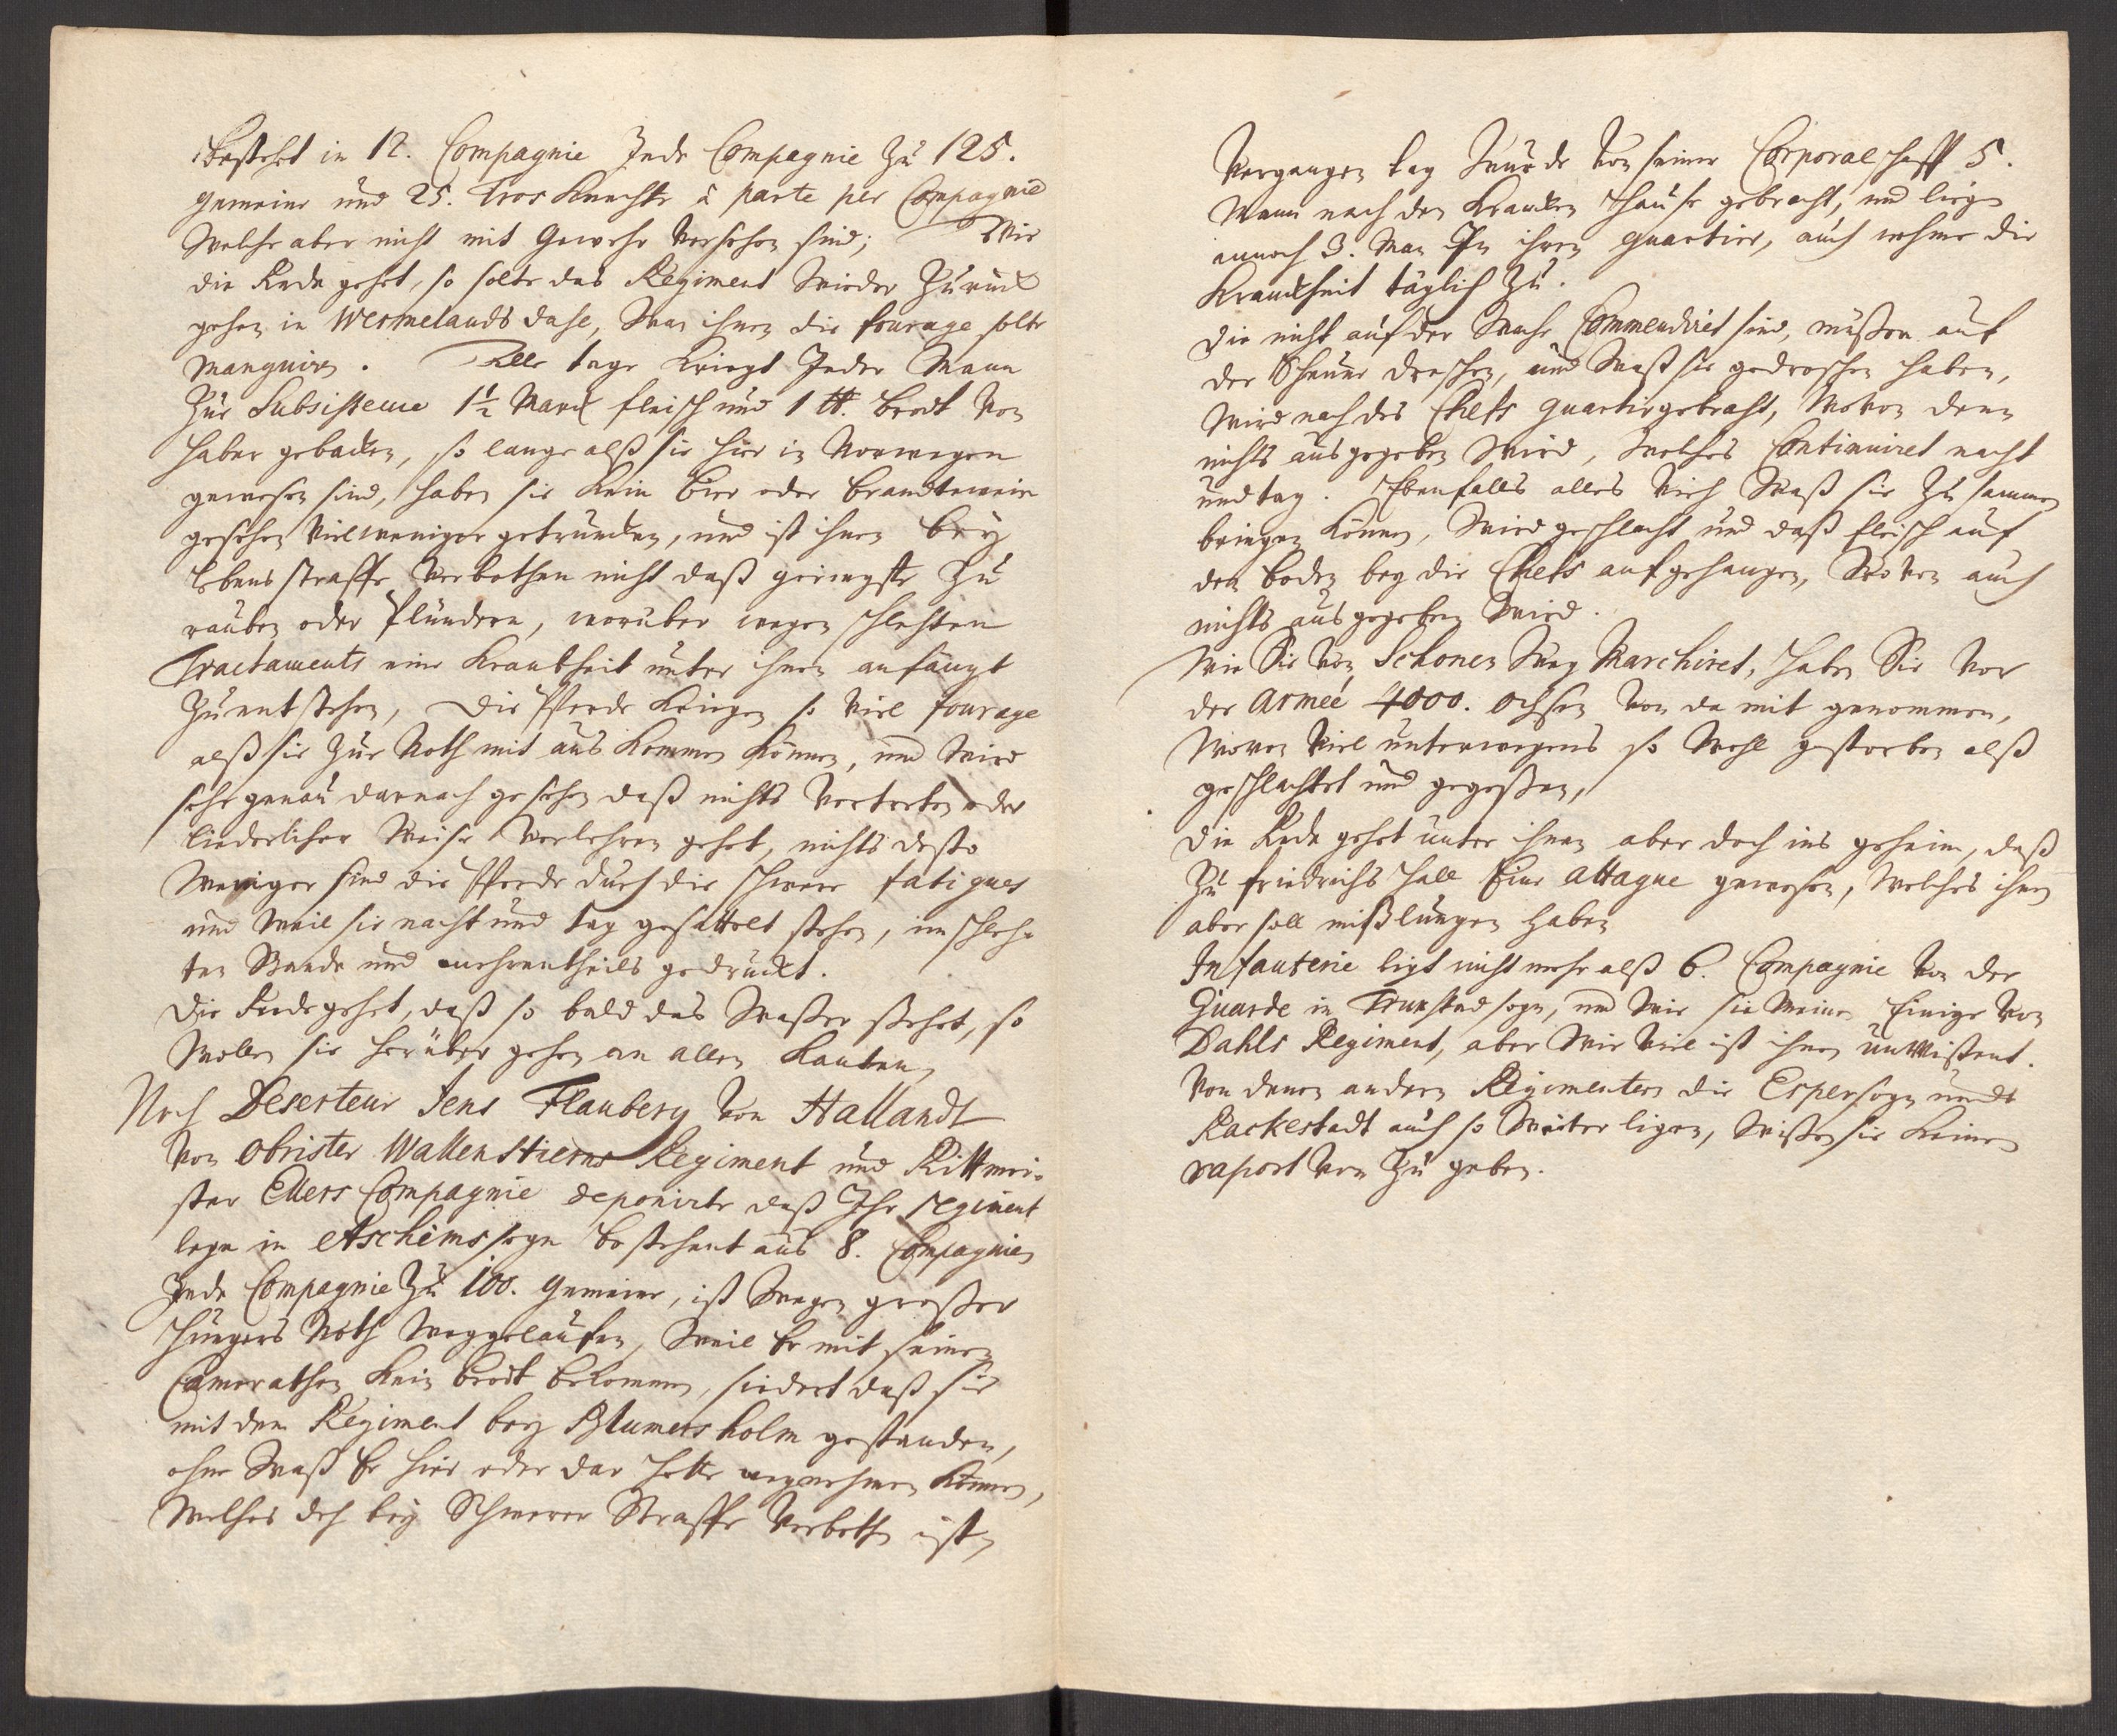 Bestehet in 12. Compagnie Jede Compagnie Zu 125.
gemeine und 25. Tros Knechte à parte per Compagnie
Welche aber nicht mit Gewehr Versehen sind; Wie
die Rede gehet, so solte das Regiment Wieder Zurück
gehen in Wermelands dahl, Wan ihnen die fourage solte
manquiren. Alle tage Kriegt Jeder Mann
Zur Subsistence 1½ Marck fleisch und 1 ℔. Brodt Von
Haber gebacken, so lange alß sie hier in Norwegen
gewesen sind, haben sie Kein Bier oder Brandtewein
gesehen Vielweniger getruncken, und ist ihnen bey
Lebens straffe Verbothen nicht daß geringste Zu
rauben oder Plündern, worüber wegen schlechten
Tractaments eine Kranckheit unter ihnen anfängt
Zu entstehen, Die Pferde Kriegen so Viel fourage
alß sie Zur Noth mit aus Kommen Können, und Wird
sehr genau darnach gesehen daß nichts Vertreten oder
liederlicher Weise Verlohren gehet, nichts desto
Weniger sind die Pferde durch die schwere fatigues
und Weil sie nacht und tag gesattelt stehen, im schlech-
ten Stande und mehrentheils gedrückt.
Die Rede gehet, daß so bald das Waßer stehet, so
Wollen sie herüber gehen an allen Kanten,
Noch Deserteur Jens Flanberg Von Hallandt
Von Obrister Wallenstierns Regiment und Rittmei-
ster Ellers Compagnie deponirte daß Ihr regiment
lege in Aschims sogn bestehent aus 8. Compagnien
Jede Compagnie Zu 100. Gemeine, ist Wegen großer
Hungers Noth Weggelauffen, Weil Er mit seinen
Camerathen Kein Brodt bekommen, sindert daß sie
mit dem Regiment bey Blumersholm gestanden,
ohne Waß Er hier oder dar hette wegnehmen Können,
Welches doch bey Schwerer Straffe Verbothen ist,
Vergangen tag Wurde Von seiner Corporalschafft 5.
Mann nach den Krancken Hause gebracht, und liegen
annoch 3. Man In ihren quartier, auch nehme die
Kranckheit täglich Zu.
Die nicht auf der Wache Commendiret sind, müßen auf
der Scheune dreschen, und Waß sie gedroschen haben,
Wird nach des Chefs quartier gebracht, Wovon denn
nichts ausgegeben Wird, Welches Continuiret nacht
und tag. Ebenfalls alles Vieh Waß sie Zu sammen
bringen Können, Wird geschlacht und daß fleisch auf
den boden bey die Chefs aufgehangen, Wovon auch
nichts ausgegeben Wird.
Wie Sie Von Schonen Weg Marchiret, haben Sie Vor
der Armeé 4000. Ochsen Von da mit genommen,
Wovon Viel unterwegens so Wohl gestorben alß
geschlachtet und gegeßen,
Die Rede gehet unter ihnen aber doch ins geheim, daß
Zu friedrichs Hall Eine attaque gewesen, Welches ihnen
aber soll mißlungen haben
Infanterie ligt nicht mehr alß 6. Compagnie Von der
Guarde in Trunstad sogn, und Wie sie Meinen Einige Von
Dahls Regiment, aber Wie Viel ist ihnen unWißent.
Von denen andern Regimentern die Espersogn undt
Rackestadt auch so Weiter ligen, Wißen sie Keinen
raport Von Zu geben.